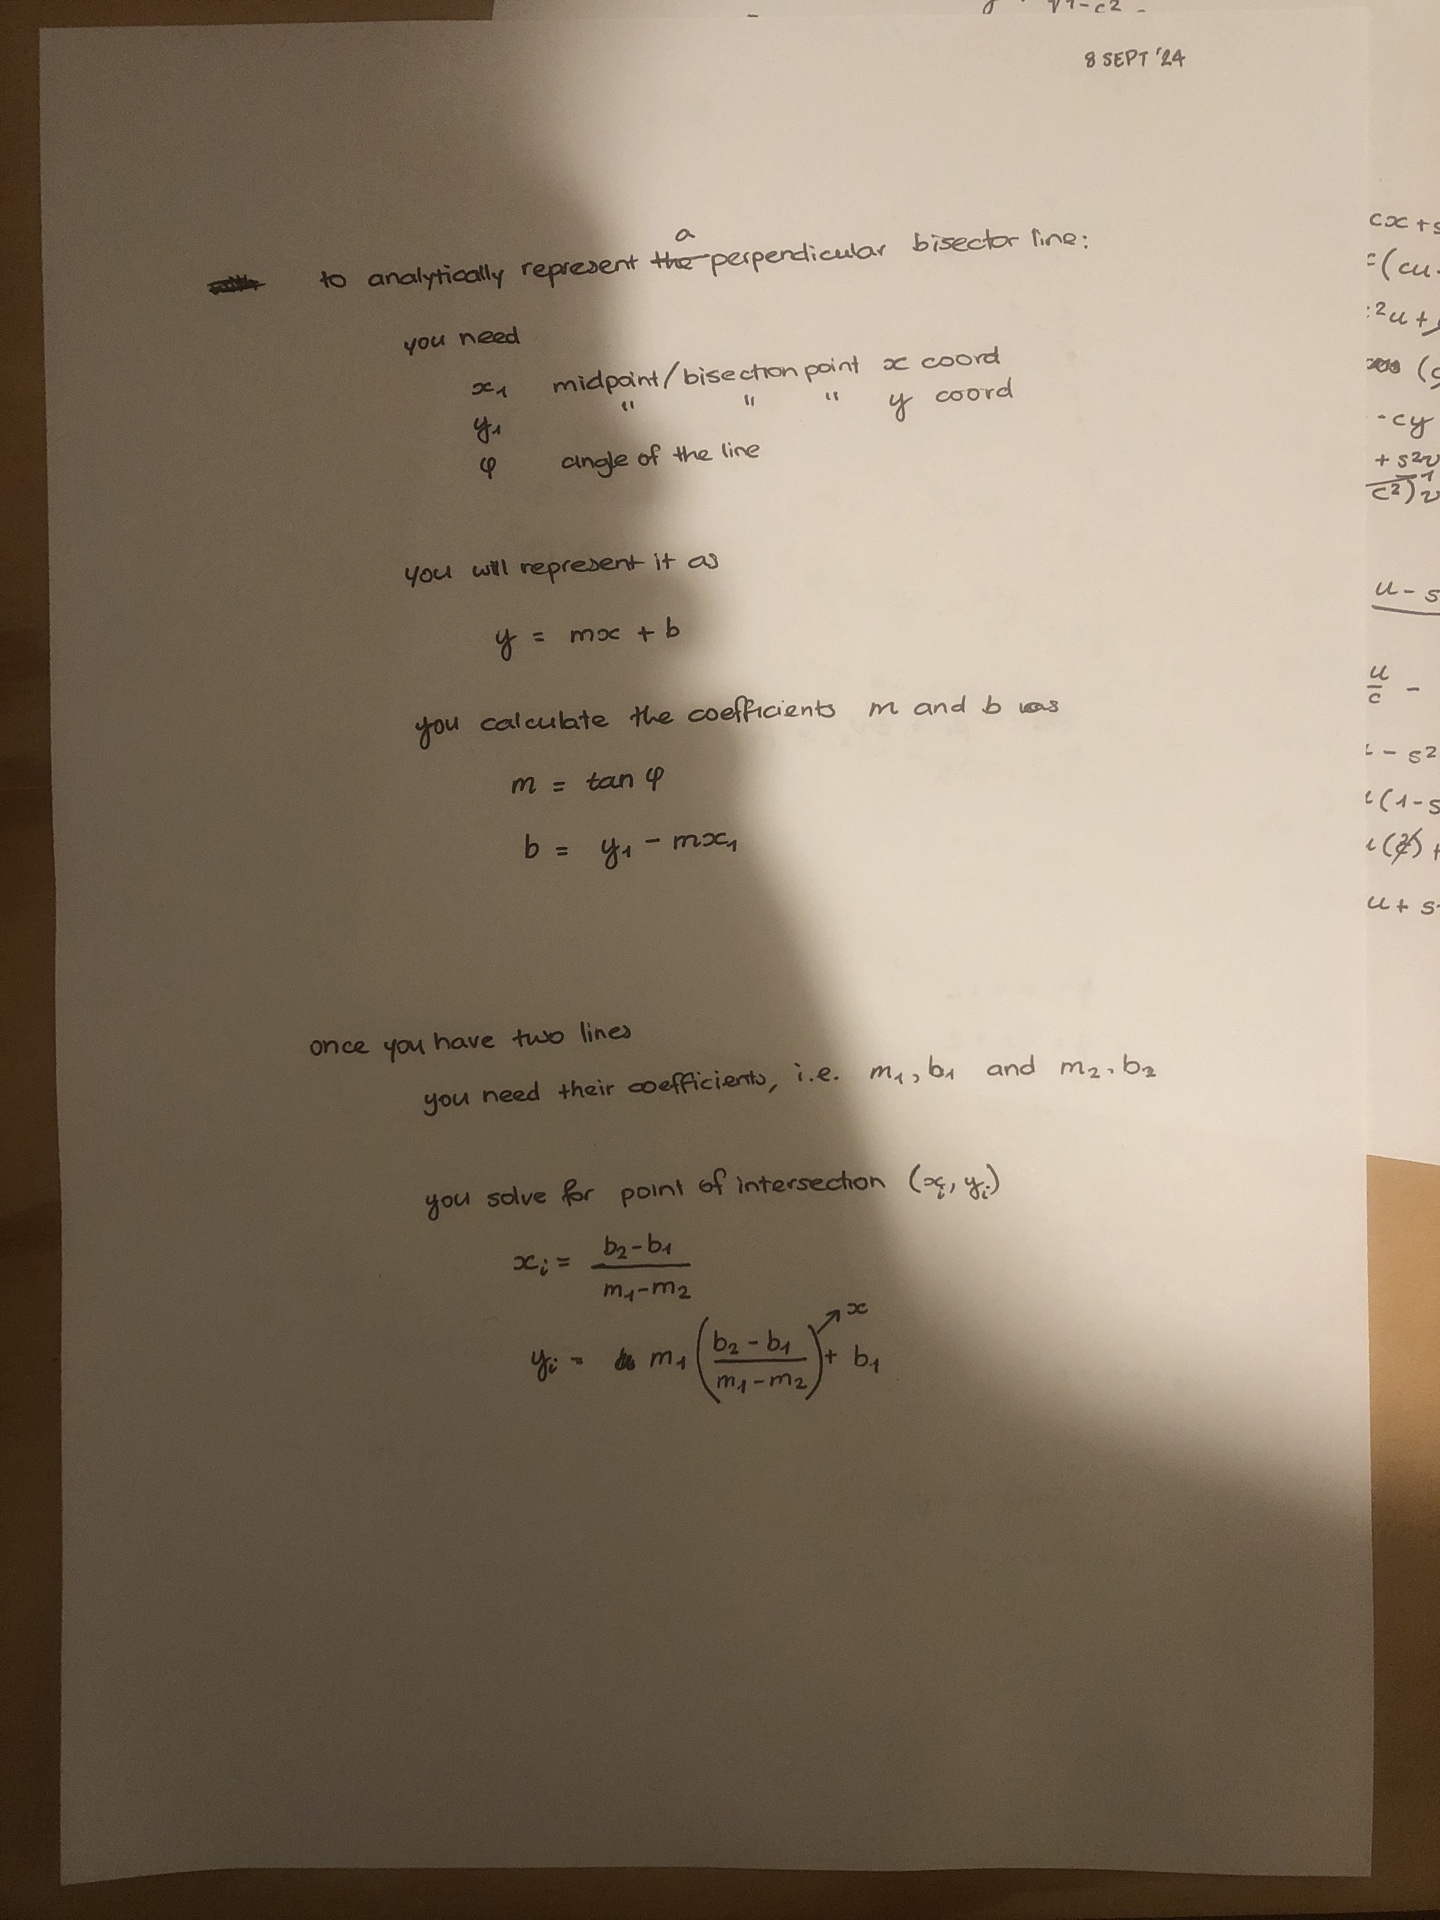 y · √1-c2 -
8 SEPT '24
a
to analytically represent the perpendicular bisector line:
you need
x1 midpoint/bisection point x coord
y1 " " " y coord
φ angle of the line
you will represent it as
y = mx + b
you calculate the coefficients m and b as
m = tan φ
b = y1 - mx1
once you have two lines
you need their coefficients, i.e. m1, b1 and m2, b2
you solve for point of intersection (xi, yi)
xi = b2-b1
m1-m2
x
yi = m1 (b2 - b1) + b1
m1 - m2
cx + s
=(cu
2u +
-cy
+ s2v
c2)
u - s
u
c -
- s2
(1-s
u + s